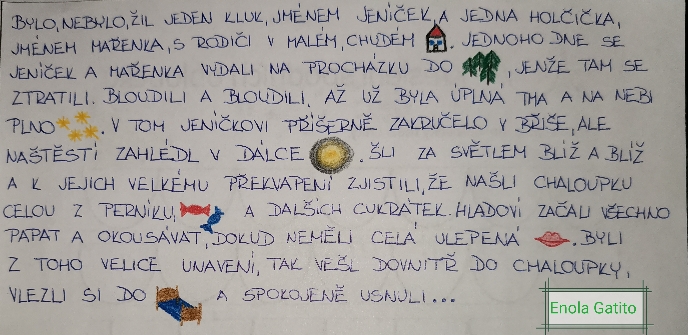 BYLO, NEBYLO, ŽIL JEDEN KLUK, JMÉNEM JENÍČEK, A JEDNA HOLČIČKA,
JMÉNEM MAŘENKA, S RODIČI V MALÉM, CHUDÉM . JEDNOHO DNE SE
JENÍČEK A MAŘENKA VYDALI NA PROCHÁZKU DO , JENŽE TAM SE
ZTRATILI. BLOUDILI A BLOUDILI, AŽ UŽ BYLA ÚPLNÁ TMA A NA NEBI
PLNO . V TOM JENÍČKOVI PŘÍŠERNĚ ZAKRUČELO V BŘIŠE, ALE
NAŠTĚSTÍ ZAHLÉDL V DÁLCE . ŠLI ZA SVĚTLEM BLÍŽ A BLÍŽ
A K JEJICH VELKÉMU PŘEKVAPENÍ ZJISTILI, ŽE NAŠLI CHALOUPKU
CELOU Z PERNÍKU, A DALŠÍCH CUKRÁTEK. HLADOVÍ ZAČALI VŠECHNO
PAPAT A OKOUSÁVAT, DOKUD NEMĚLI CELÁ ULEPENÁ . BYLI
Z TOHO VELICE UNAVENÍ, TAK VEŠLI DOVNITŘ DO CHALOUPKY,
VLEZLI SI DO A SPOKOJENĚ USNULI...
Enola Gatito